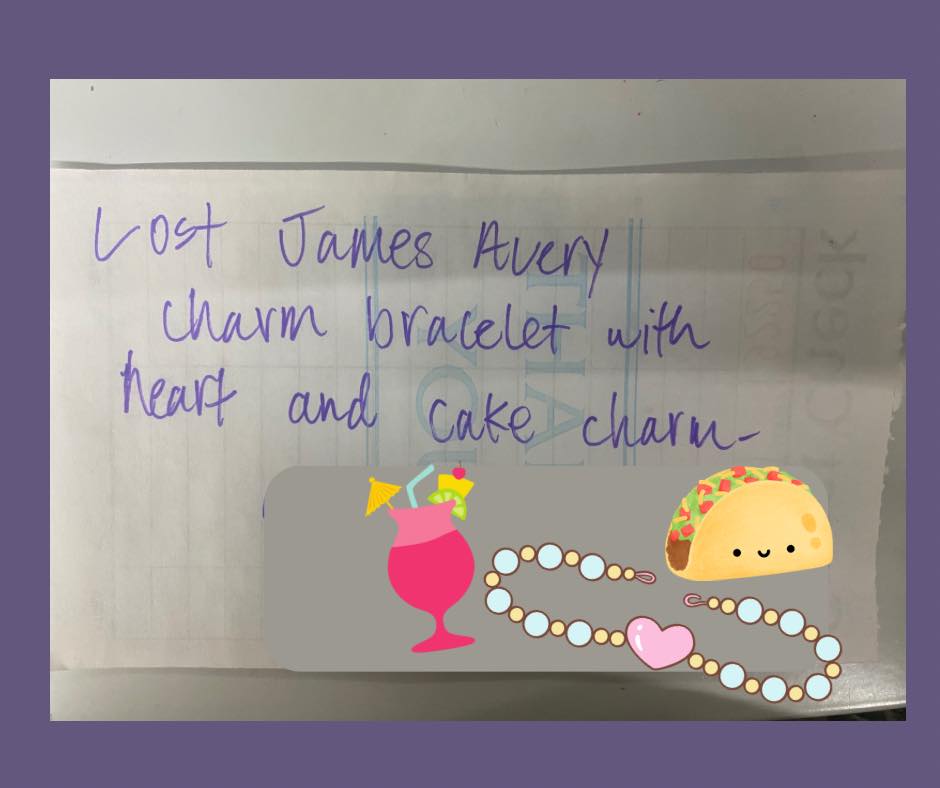 Lost James Avery
charm bracelet with
heart and cake charm-
THAN
YOU